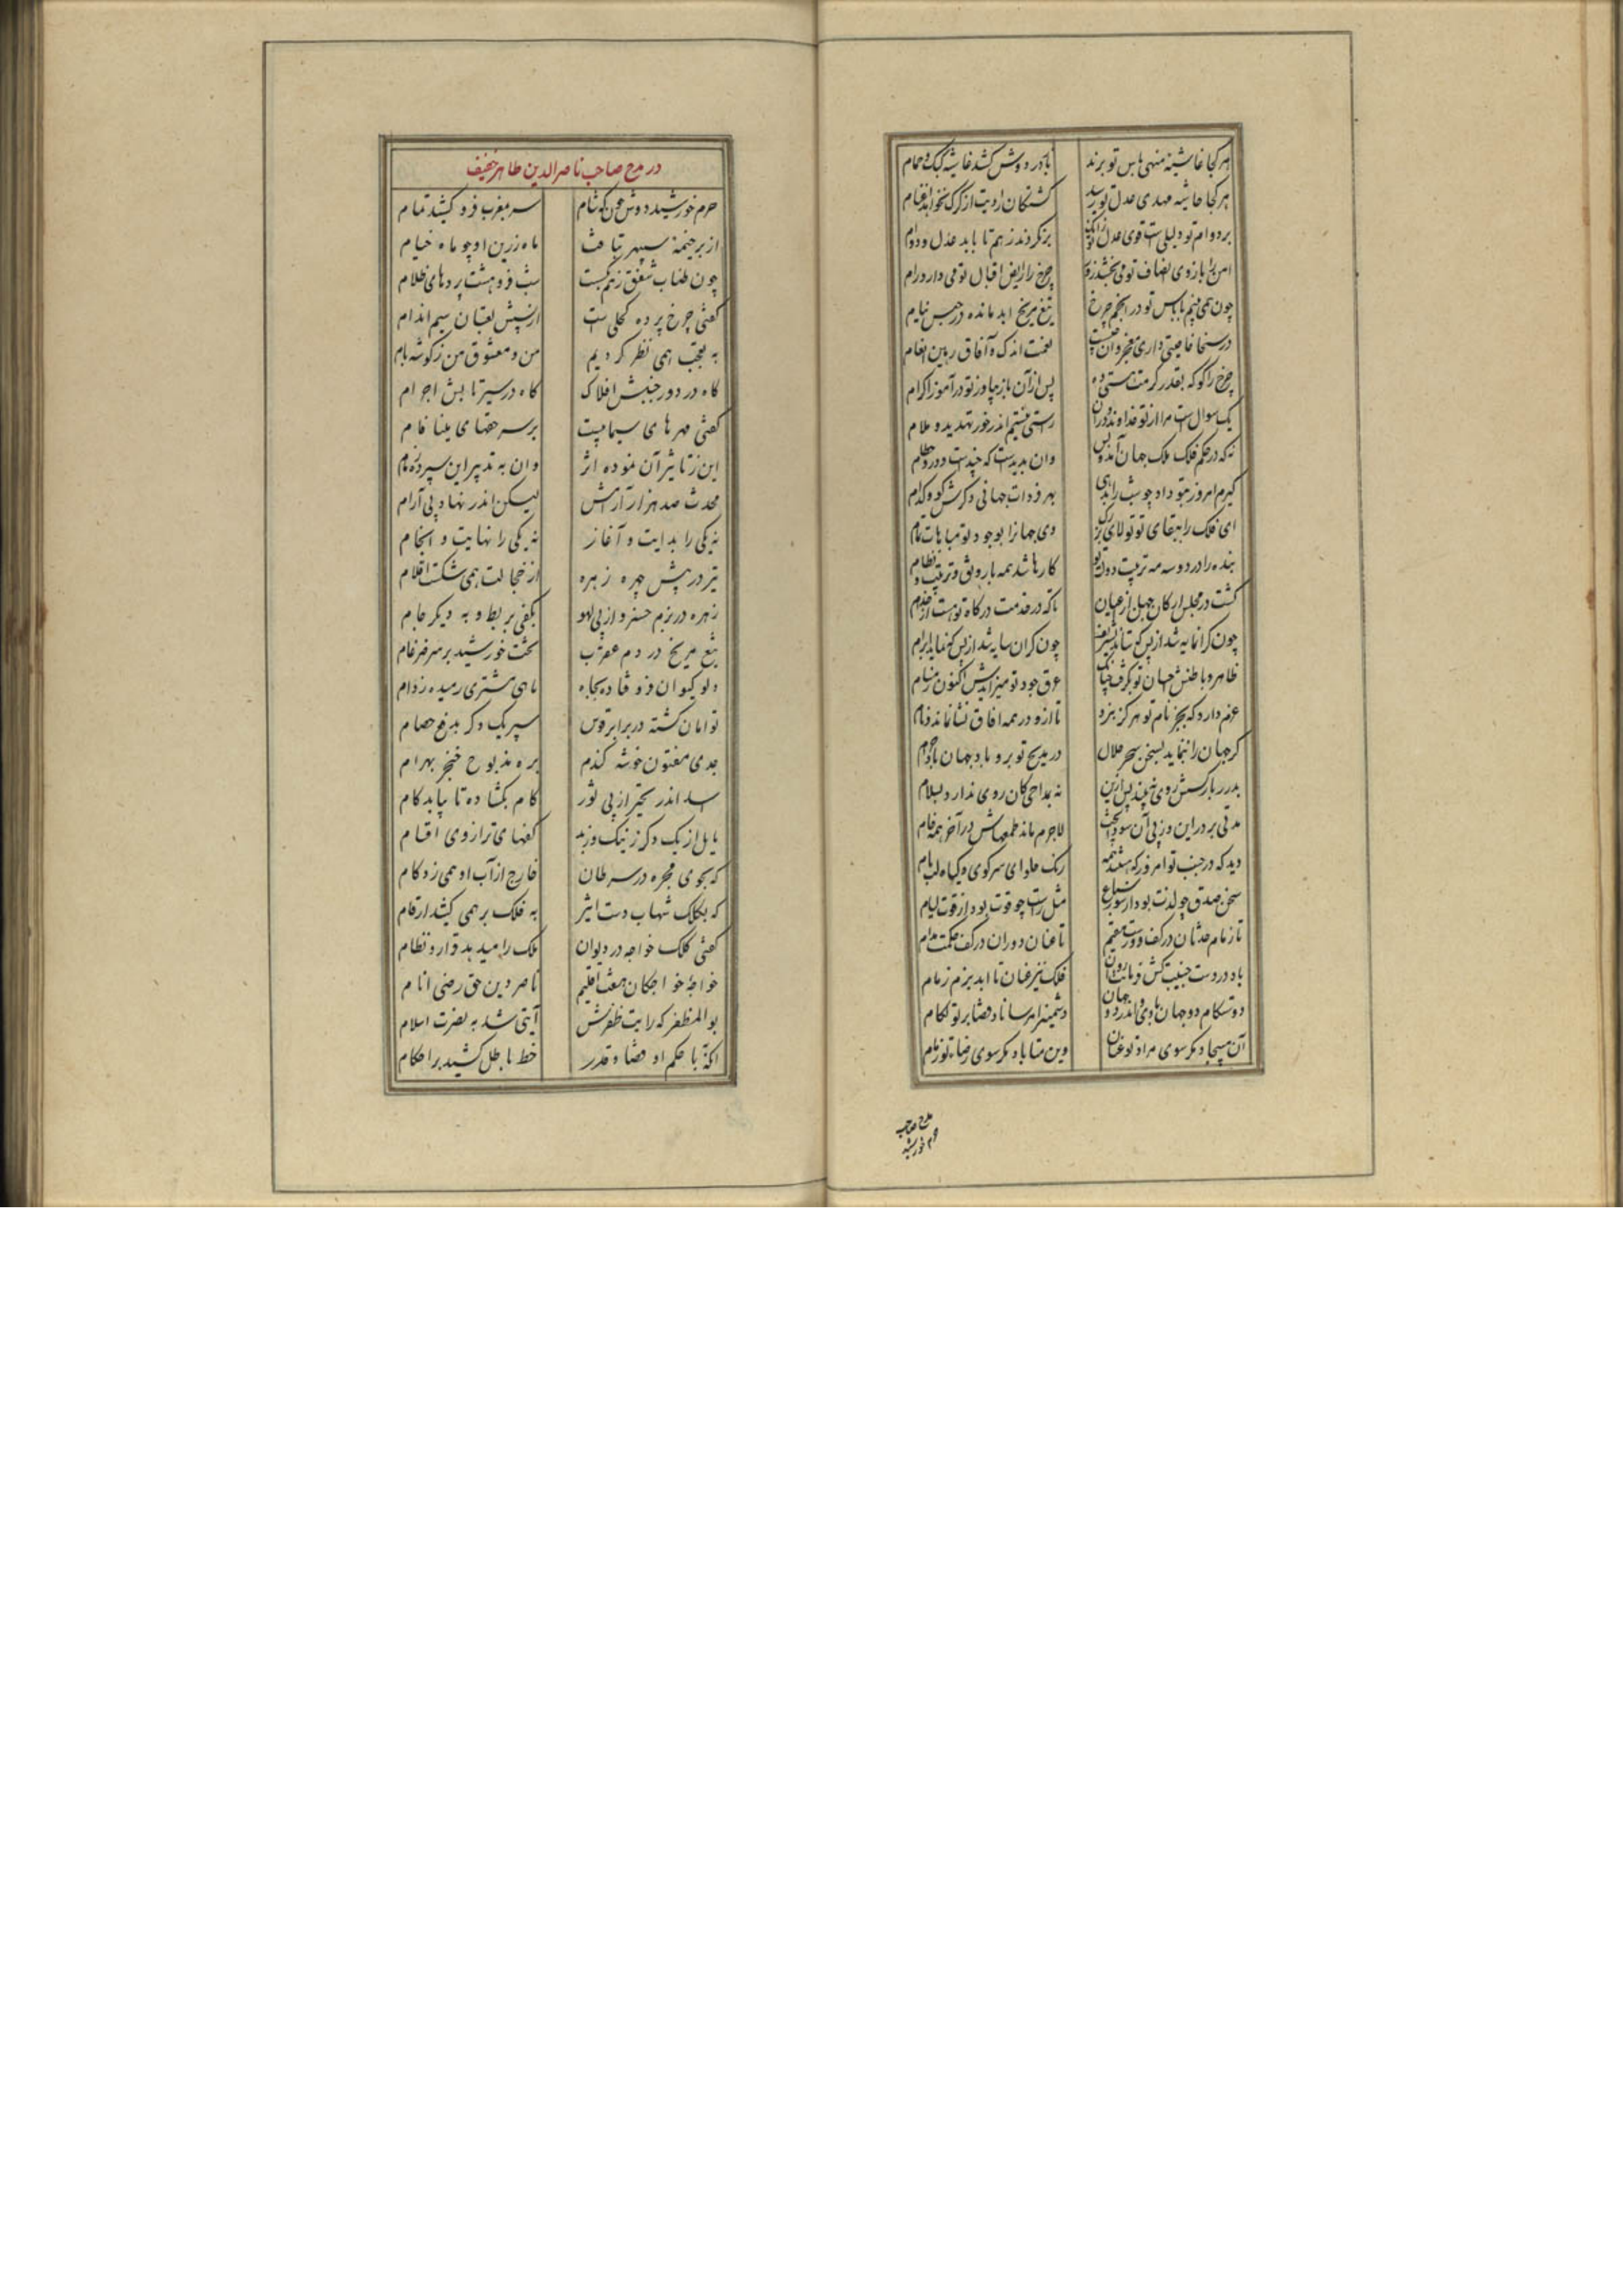 هر کجا غاشیه منهی باس تو برند    باز در دوش کشد غاشیه کبک و حمام
هر کجا حاشیه مهدی عدل تو رسد    کشتکان را دیت از کرک بخواهد اغنام
بر دوام تو دلیلی است قوی عدل تو زانک    بر نکردند ز هم تا باید عدل و دوام
امن را بازوی انصاف تو می بخشد زور    چرخ را رایض اقبال تو می دارد رام
چون همی بینم با باس تو در انجم چرخ    تیغ مریخ ابد مانده در حبس نیام
در سخا خاصیتی داری معجز و آن چیست    نعمت اندک و آفاق رهین انعام
چرخ را کو که بقدر کرمت هستی ده    پس از آن باز بیاور ز تو در آموز اکرام
یک سوال است مرا از تو خداوند و در آن    راستی نیستم اندر خور تهدید و ملام
نه که در حکم فلک ملک جهان آمد و بس    وان بدیدست که چندست و در و چه حطام
کیرم امروز بتو داد چو شب را بدهی    بهر فردات جهانی دکرش کو و کدام
ای فلک را ببقای تو تولای بزرک    وی جهانرا بوجود تو مباهات تمام
بنده را در دو سه مه تربیت دولت تو    کارها شد همه با رونق و ترتیب و نظام
کشت در مجلس ارکان جهان از اعیان    تا که در خدمت درکاه تو هست از خدام
چون کرانمایه شد از بس که ستاند تشریف    چون کران سایه شد از بس که نماید ابرام
ظاهر و باطنش احسان تو بکرفت چنان    عرق جود تو میزایدش اکنون ز مسام
عزم دارد که بجز نام تو هرکز نبرد    تا ازو در همه آفاق نشان ماند و نام
کر جهان را ننماید بسخن سحر حلال    در مدیح تو برو باد جهان باد حرام
بدر بار کسش روی نبیند پس ازین    نه بمداحی کان روی ندارد بسلام
مدتی بر در این وز پی آن سودا پخت    لاجرم ماند طمعهاش در آخر همه خام
دید که در جنب تو امروز که هستند همه    رنک حلوای سر کوی و کیاه لب بام
سخن صدق چو لذت بود از سوز سماع    مثل راست چو قوت بود از قوت لیام
تا زمام حدثان در کف دورست مقیم    تا عنان دوران در کف حکمت مدام
باد در دست جنیبت کش فرمانت روان    فلک تیز عنان تا ابد نرم زمام
دوستکام دو جهان بادی و اندر دو جهان    دشمنت را مرسانا و قضا بر تو لکام
آن مپیچاد مکر سوی مراد تو عنان    وین متاباد مکر سوی رضاء تو زمام
مدح صاحب
جرم خورشید
در مدح صاحب ناصر الدین طاهر خفیف
جرم خورشید دوش چون که شام    سر بمغرب فرو کشید تمام
از بر خیمه سپهر بتافت    ماه زرین او چو ماه خیام
چون طناب شفق ز هم بکست    شب فرو هشت پردهای ظلام
کفتی چرخ پرده کحلی ست    از پسش لعبتان سیم اندام
به تعجب همی نظر کردیم    من و معشوق من ز کوشه بام
کاه در دور جنبش افلاک    کاه در سیر تابش اجرام
کفتی مهرهای سیمابیست    بر سر حقهای مینا فام
این ز تاثیر آن نموده اثر    وان به تدبیر این سپرده زمام
محدث صد هزار آرامش    لیکن اندر نهاد بی آرام
نه یکی را بدایت و آغاز    نه یکی را نهایت و انجام
تیر در پیش چهره زهره    از خجالت همی شکست اقلام
زهره در بزم خسرو از پی لهو    بکفی بربط و به دیکر جام
تیغ مریخ در دم عقرب    تخت خورشید بر سر ضرغام
دلو کیوان فرو فتاده بچاه    ماهی مشتری رمیده ز دام
توامان کشته در برابر قوس    سپر یک دکر بدفع حصام
جدی مفتون خوشه کندم    بره مذبوح خنجر بهرام
اسد اندر تحیر از پی ثور    کام بکشاده تا بیابد کام
مایل از یک دکر ز نیک و ز بد    کفهای ترازوی اقسام
که بجوی مجره در سرطان    خارج از آب او همی زد کام
که بکلک شهاب دست اثیر    به فلک بر همی کشید ارقام
کفتی کلک خواجه در دیوان    ملک را میدهد قرار و نظام
خواجهٔ خواجکان هفت اقلیم    ناصر دین حق رضی انام
بوالمظفر که رایت ظفرش    آیتی شد به نصرت اسلام
آنکه با حکم او قضا و قدر    خط باطل کشید بر احکام